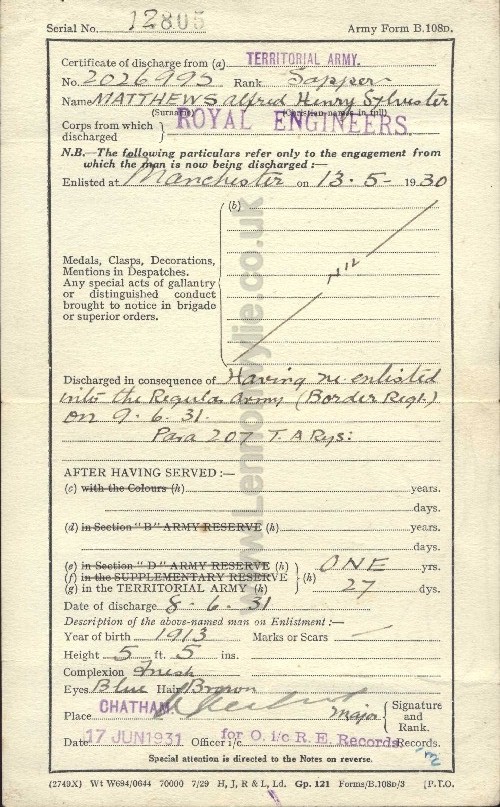 Serial No. 12805 Army Form B.108D.
Certificate of discharge from (a) TERRITORIAL ARMY.
No. 2026995 Rank Sapper
Name MATTHEWS Alfred Henry Sylvester
(Surname) (Christian names in full)
Corps from which discharged } ROYAL ENGINEERS.
N.B.—The following particulars refer only to the engagement from
which the man is now being discharged :—
Enlisted at Manchester on 13.5- 1930
(b)
Medals, Clasps, Decorations,
Mentions in Despatches.
Any special acts of gallantry
or distinguished conduct
brought to notice in brigade
or superior orders.
Nil
Discharged in consequence of Having re-enlisted
into the Regular Army (Border Regt.)
on 9.6.31.
Para 207 T.A Rgs:
AFTER HAVING SERVED :—
(c) with the Colours (h) years.
days.
(d) in Section "B" ARMY RESERVE (h) years.
days.
(e) in Section "D" ARMY RESERVE (h)
(f) in the SUPPLEMENTARY RESERVE (h) ONE yrs.
(g) in the TERRITORIAL ARMY (h) 27 dys.
Date of discharge 8.6.31
Description of the above-named man on Enlistment :—
Year of birth 1913 Marks or Scars —
Height 5 ft. 5 ins.
Complexion Fresh
Eyes Blue Hair Brown
Place CHATHAM. Major } Signature and Rank.
Date 17 JUN 1931 Officer i/c for O. i/c R. E. Records Records.
Special attention is directed to the Notes on reverse.
(2749X) Wt W694/0644 70000 7/29 H, J, R & L, Ld. Gp. 121 Forms/B.108D/3 [P.T.O.
www.Lennonwylie.co.uk